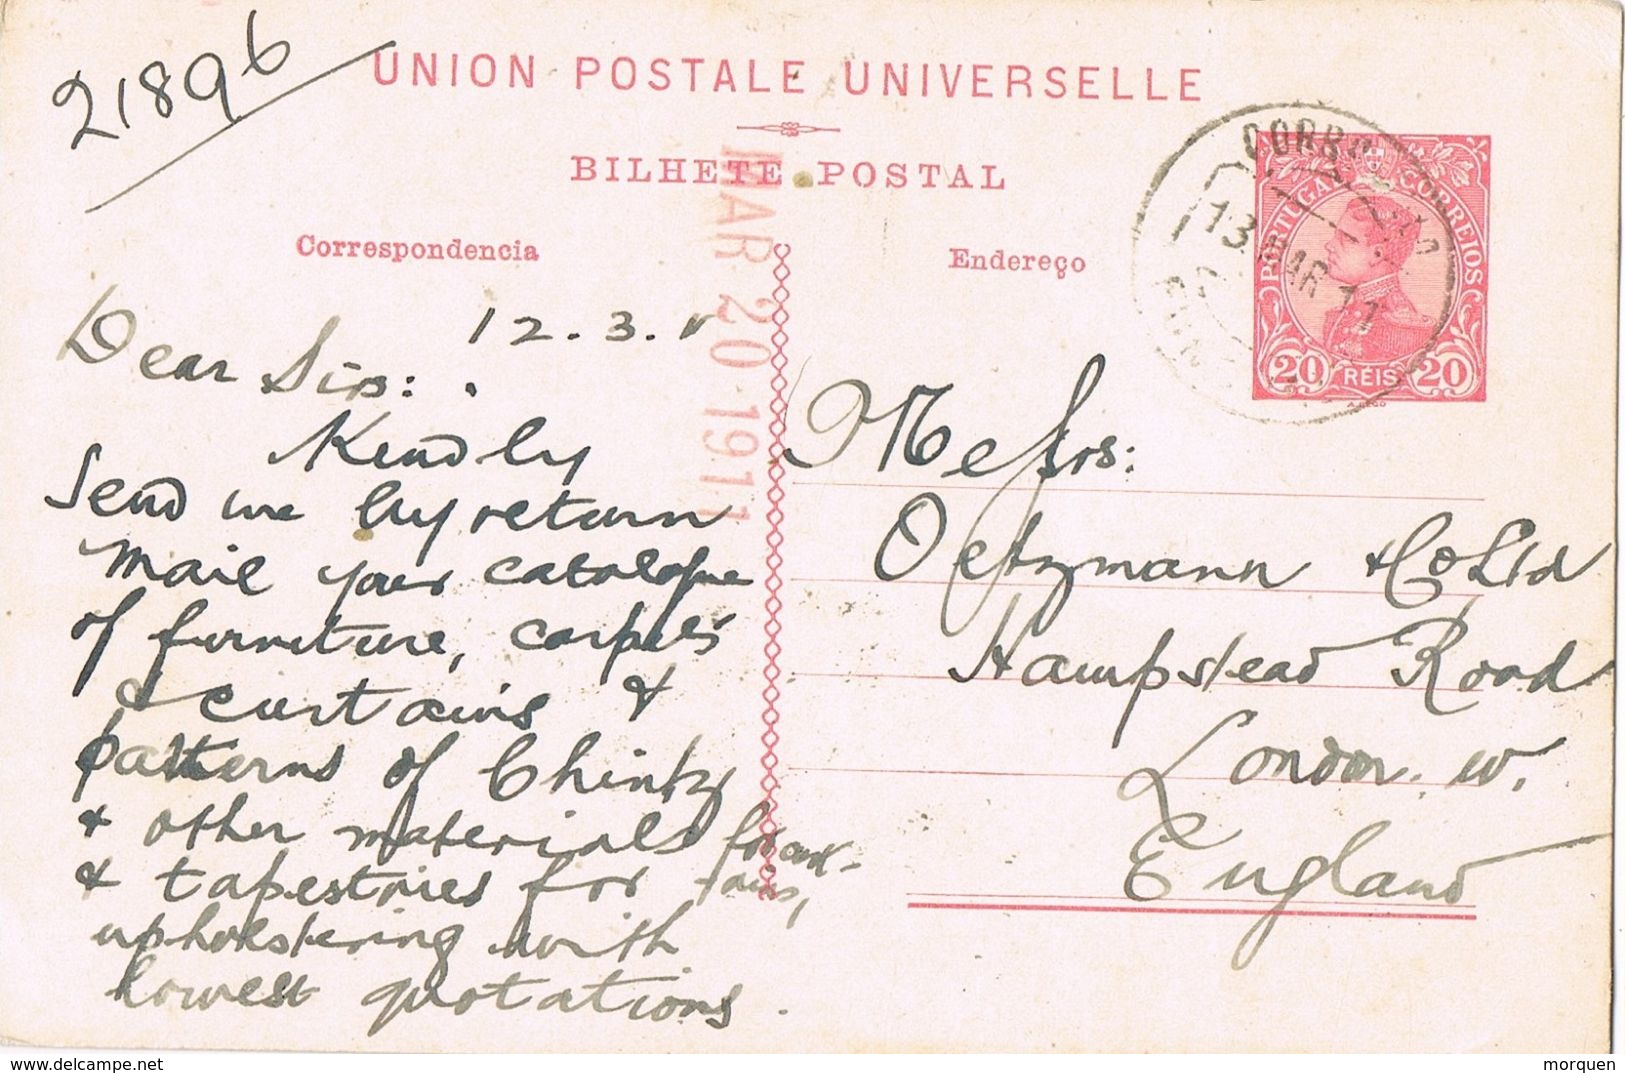 21896
UNION POSTALE UNIVERSELLE
BILHETE POSTAL
Correspondencia
Endereço
MAR 20 1911
13 MAR 11
PORTUGAL CORREIOS
20 RÉIS 20
12.3.
Dear Sirs:
Kindly
send me by return
mail your catalogue
of furniture, carpets
& curtains &
patterns of Chintz
& other materials for curtains,
& tapestries for
upholstering with
lowest quotations.
Messrs:
Oetzmann & Co Ltd
Hampstead Road
London. W.
England
delcampe.net
morquen